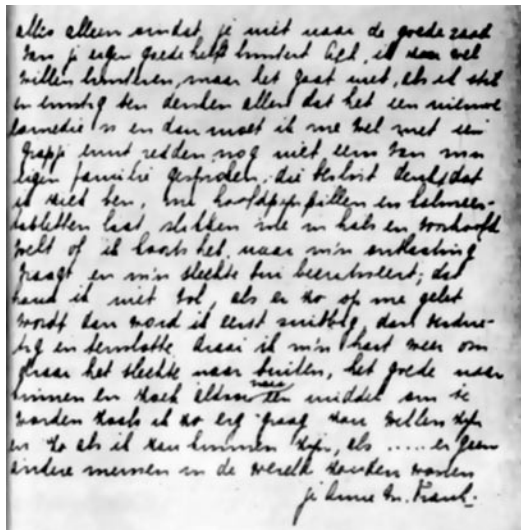 alles alleen omdat je niet naar de goede raad
van je eigen goede helft luistert. Ach, ik zou wel
willen luisteren, maar het gaat niet, als ik stil
en ernstig ben denken allen dat het een nieuwe
comedie is en dan moet ik me wel met een
grapje eruit redden nog niet eens van m'n
eigen familie gesproken, die beslist denkt dat
ik ziek ben, me hoofdpijnpillen en kalmeer-
tabletten laat slikken me in hals en voorhoofd
voelt of ik koorts heb, naar m'n ontlasting
vraagt en m'n slechte bui becritiseert; dat
houd ik niet vol, als er zo op me gelet
wordt dan word ik eerst snibbig, dan verdrie-
tig en tenslotte draai ik m'n hart weer om
draai het slechte naar buiten, het goede naar
binnen en zoek aldoor naar een middel om te
worden zoals ik zo erg graag zou willen zijn
en zo als ik zou kunnen zijn, als ..... er geen
andere mensen in de wereld zouden wonen
je Anne M. Frank.